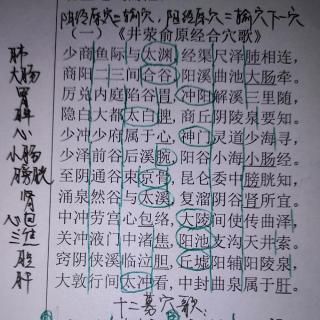 阴经原穴=输穴，阳经原穴=输穴下一穴
（一）《井荥俞原经合穴歌》
肺 少商鱼际与太渊，经渠尺泽肺相连，
大肠 商阳二三间合谷，阳溪曲池大肠牵。
胃 厉兑内庭陷谷胃，冲阳解溪三里随，
脾 隐白大都太白脾，商丘阴陵泉要知。
心 少冲少府属于心，神门灵道少海寻，
小肠 少泽前谷后溪腕，阳谷小海小肠经。
膀胱 至阴通谷束京骨，昆仑委中膀胱知，
肾 涌泉然谷与太溪，复溜阴谷肾所宜。
心包 中冲劳宫心包络，大陵间使传曲泽，
三焦 关冲液门中渚焦，阳池支沟天井索。
胆 窍阴侠溪临泣胆，丘墟阳辅阳陵泉，
肝 大敦行间太冲看，中封曲泉属于肝。
十二募穴歌：